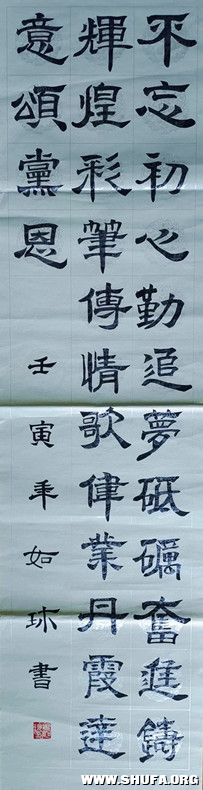 不忘初心勤追夢砥礪奮進鑄
輝煌彩筆傳情歌偉業丹霞達
意頌黨恩
壬寅年如珠書
WWW.SHUFA.ORG